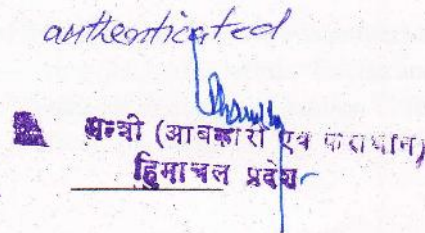 authenticated
मन्त्री (आबकारी एवं कराधान)
हिमाचल प्रदेश